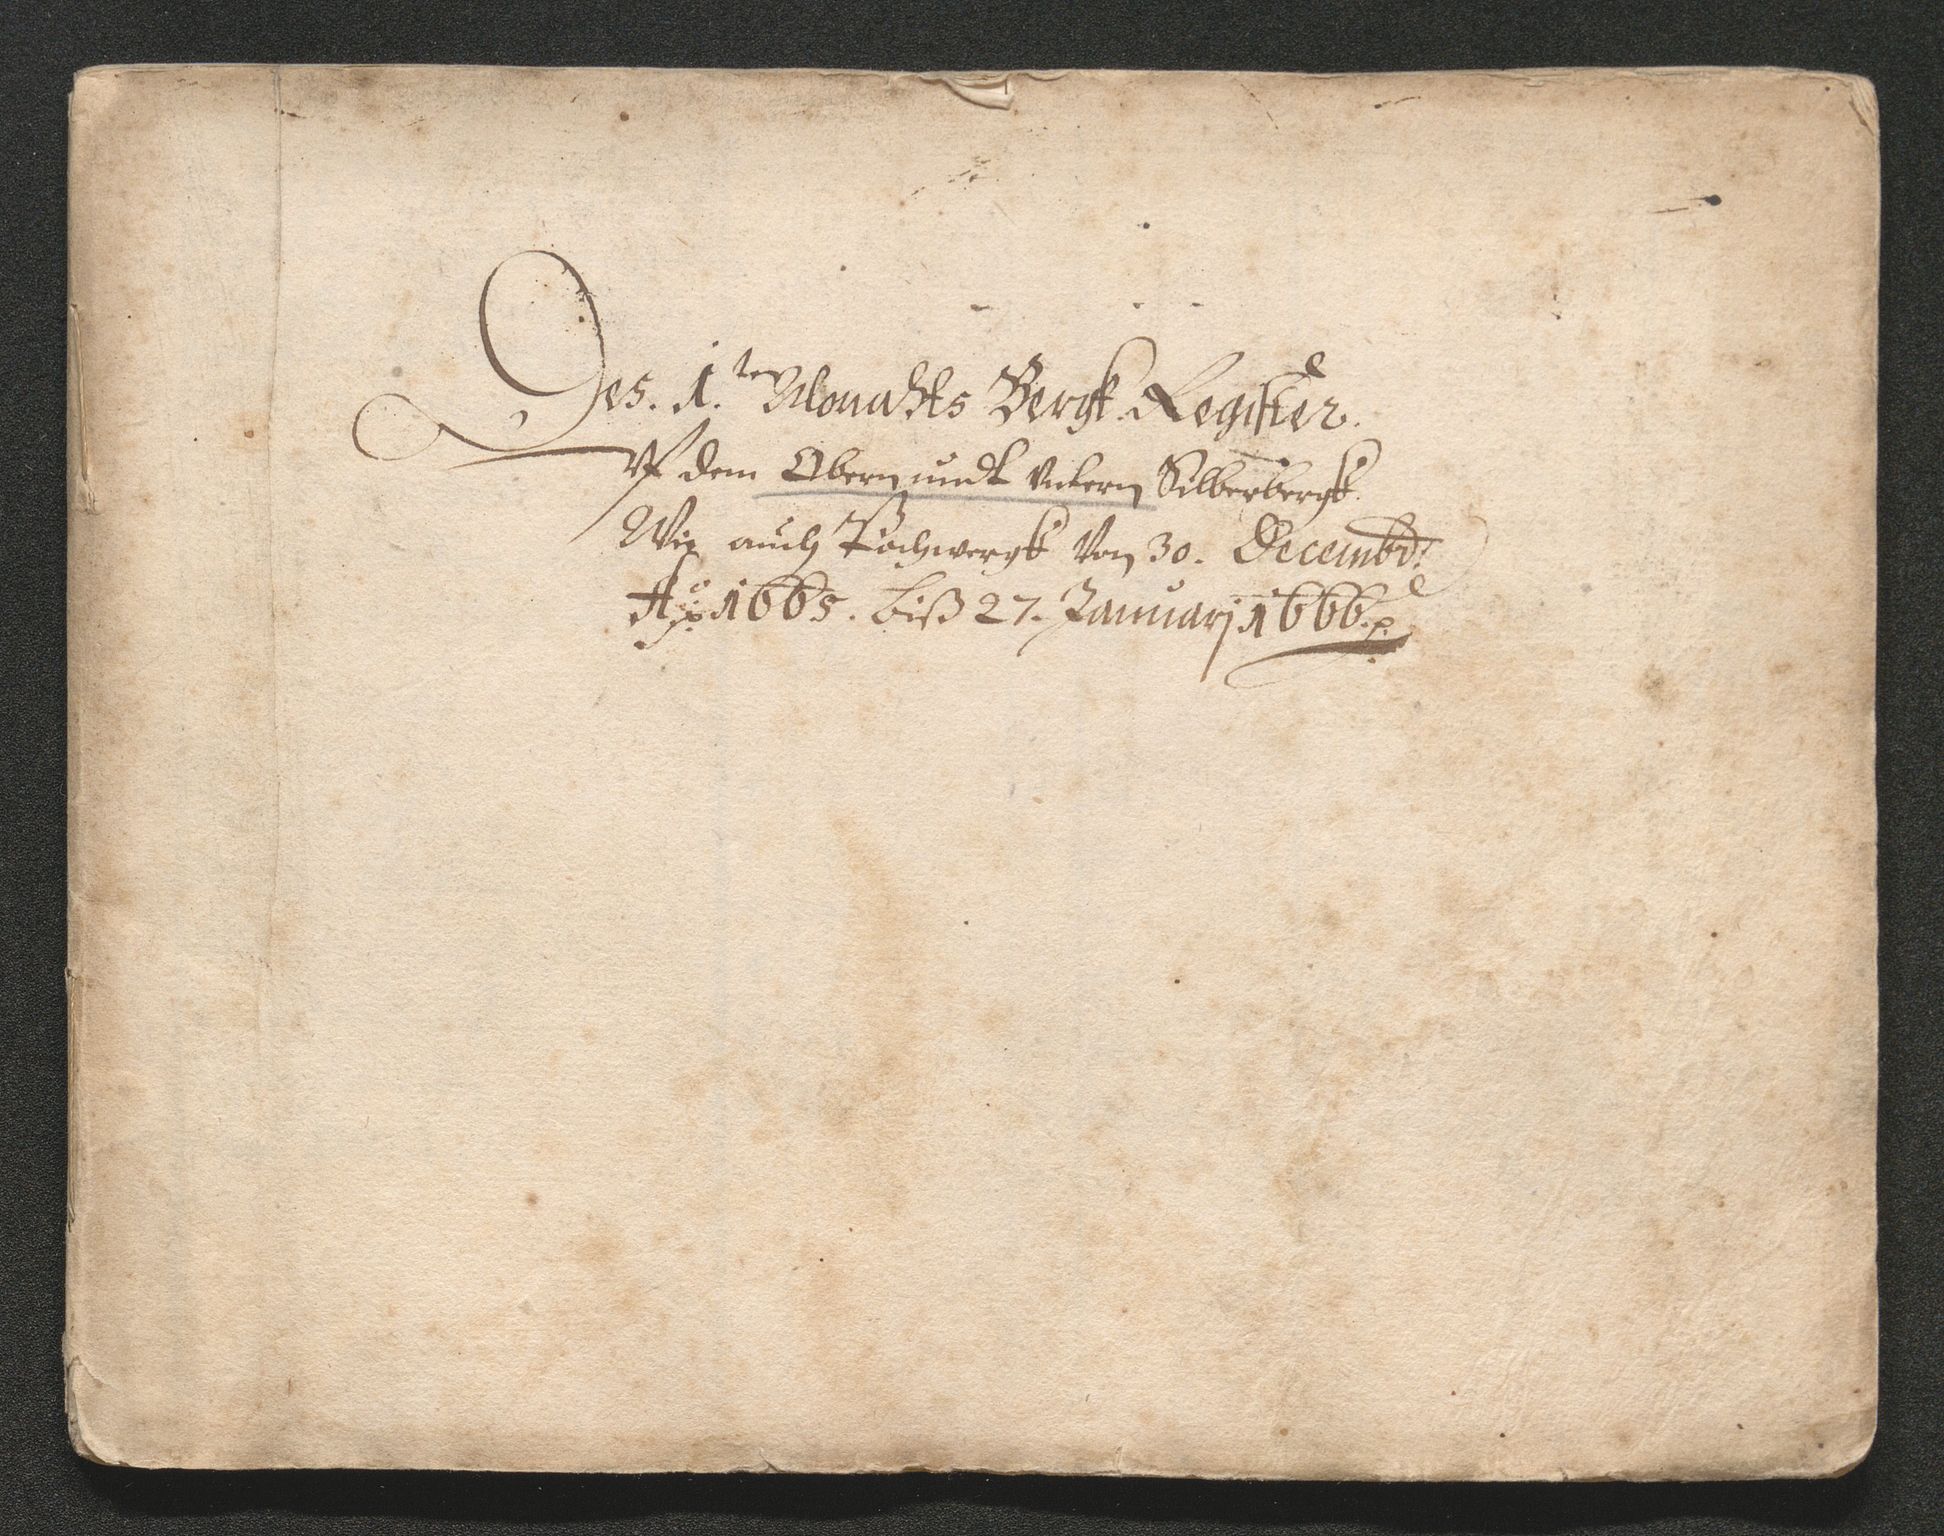 Des. 1.ten Monahts Bergk Register.
Vf dem Obern undt Untern Silberbergk.
Wie auch Pochwergk Von 30. Decembr:
Ao 1665. biß 27. Januarj 1666.